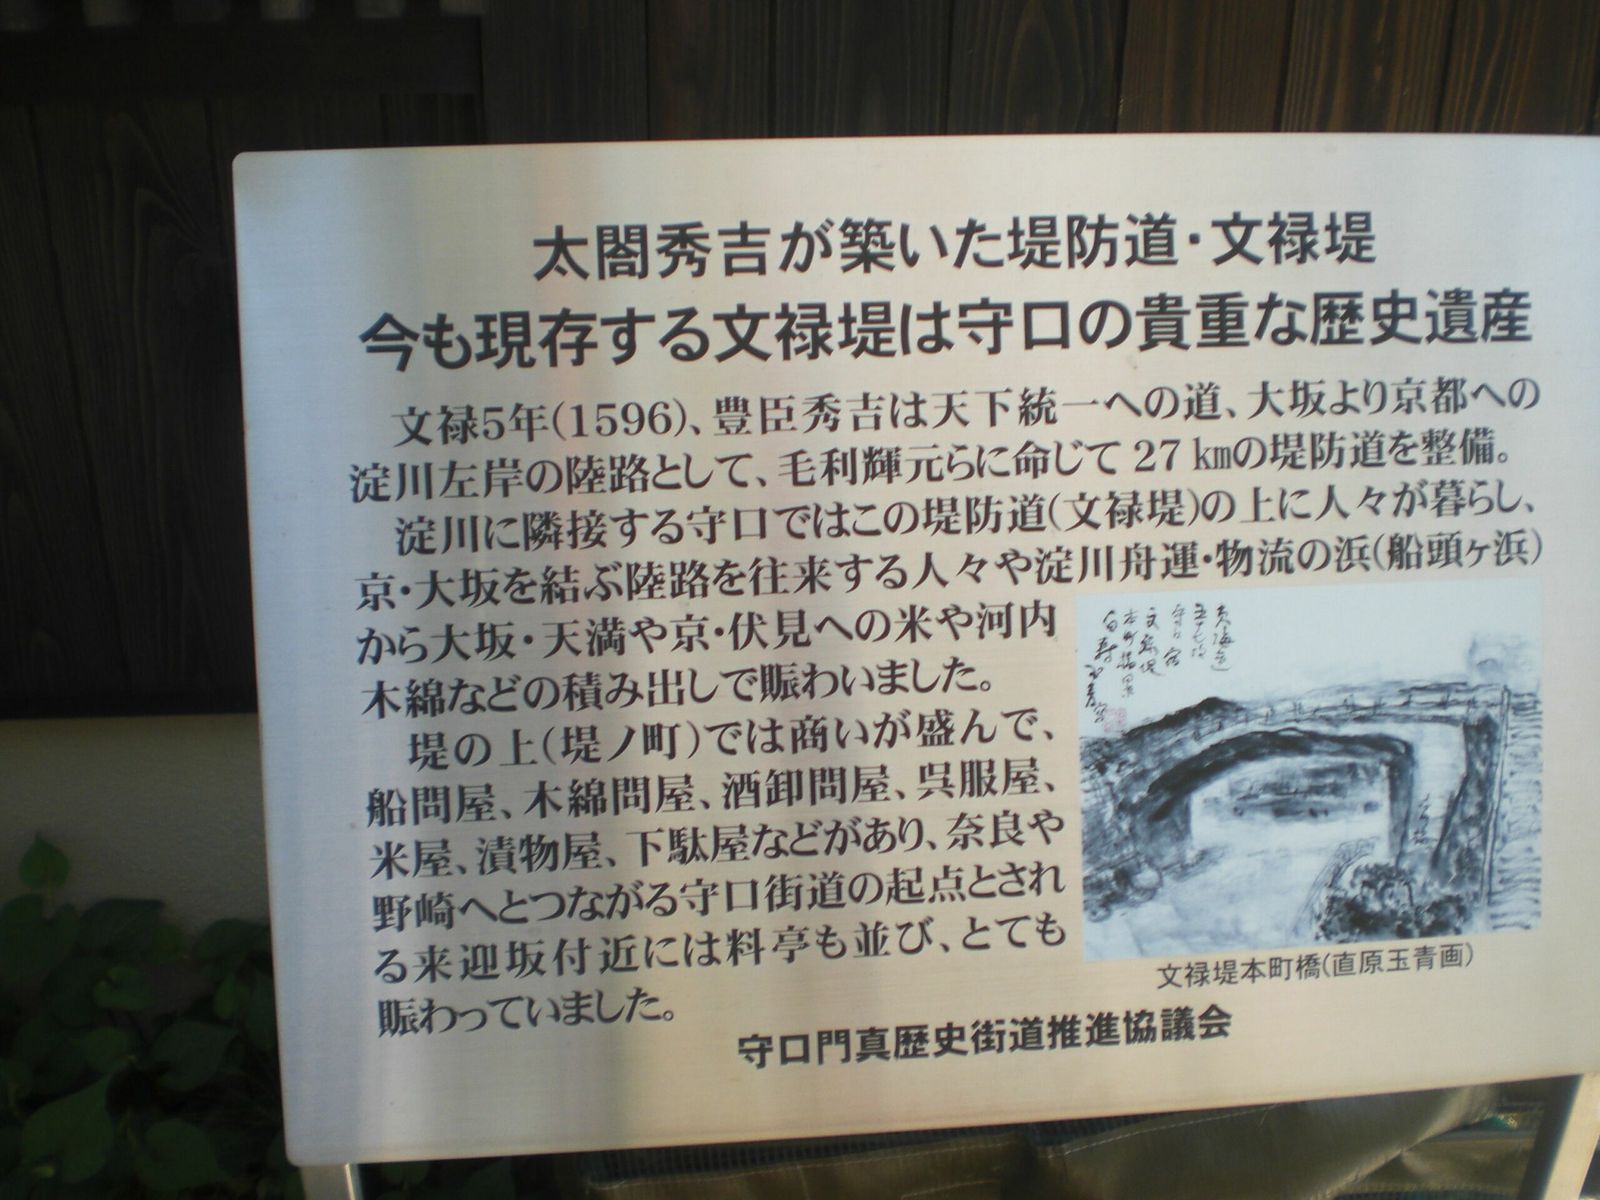 太閤秀吉が築いた堤防道・文禄堤
今も現存する文禄堤は守口の貴重な歴史遺産
文禄5年(1596)、豊臣秀吉は天下統一への道、大坂より京都への
淀川左岸の陸路として、毛利輝元らに命じて27㎞の堤防道を整備。
淀川に隣接する守口ではこの堤防道(文禄堤)の上に人々が暮らし、
京・大坂を結ぶ陸路を往来する人々や淀川舟運・物流の浜(船頭ヶ浜)
から大坂・天満や京・伏見への米や河内
木綿などの積み出しで賑わいました。
堤の上(堤ノ町)では商いが盛んで、
船問屋、木綿問屋、酒卸問屋、呉服屋、
米屋、漬物屋、下駄屋などがあり、奈良や
野崎へとつながる守口街道の起点とされ
る来迎坂付近には料亭も並び、とても
賑わっていました。
守口宿
文禄堤
文禄堤本町橋(直原玉青画)
守口門真歴史街道推進協議会